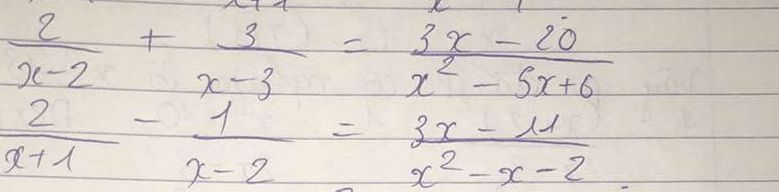 2/(x-2) + 3/(x-3) = (3x - 20)/(x² - 5x+6)
2/(x+1) - 1/(x-2) = (3x - 11)/(x² - x - 2)